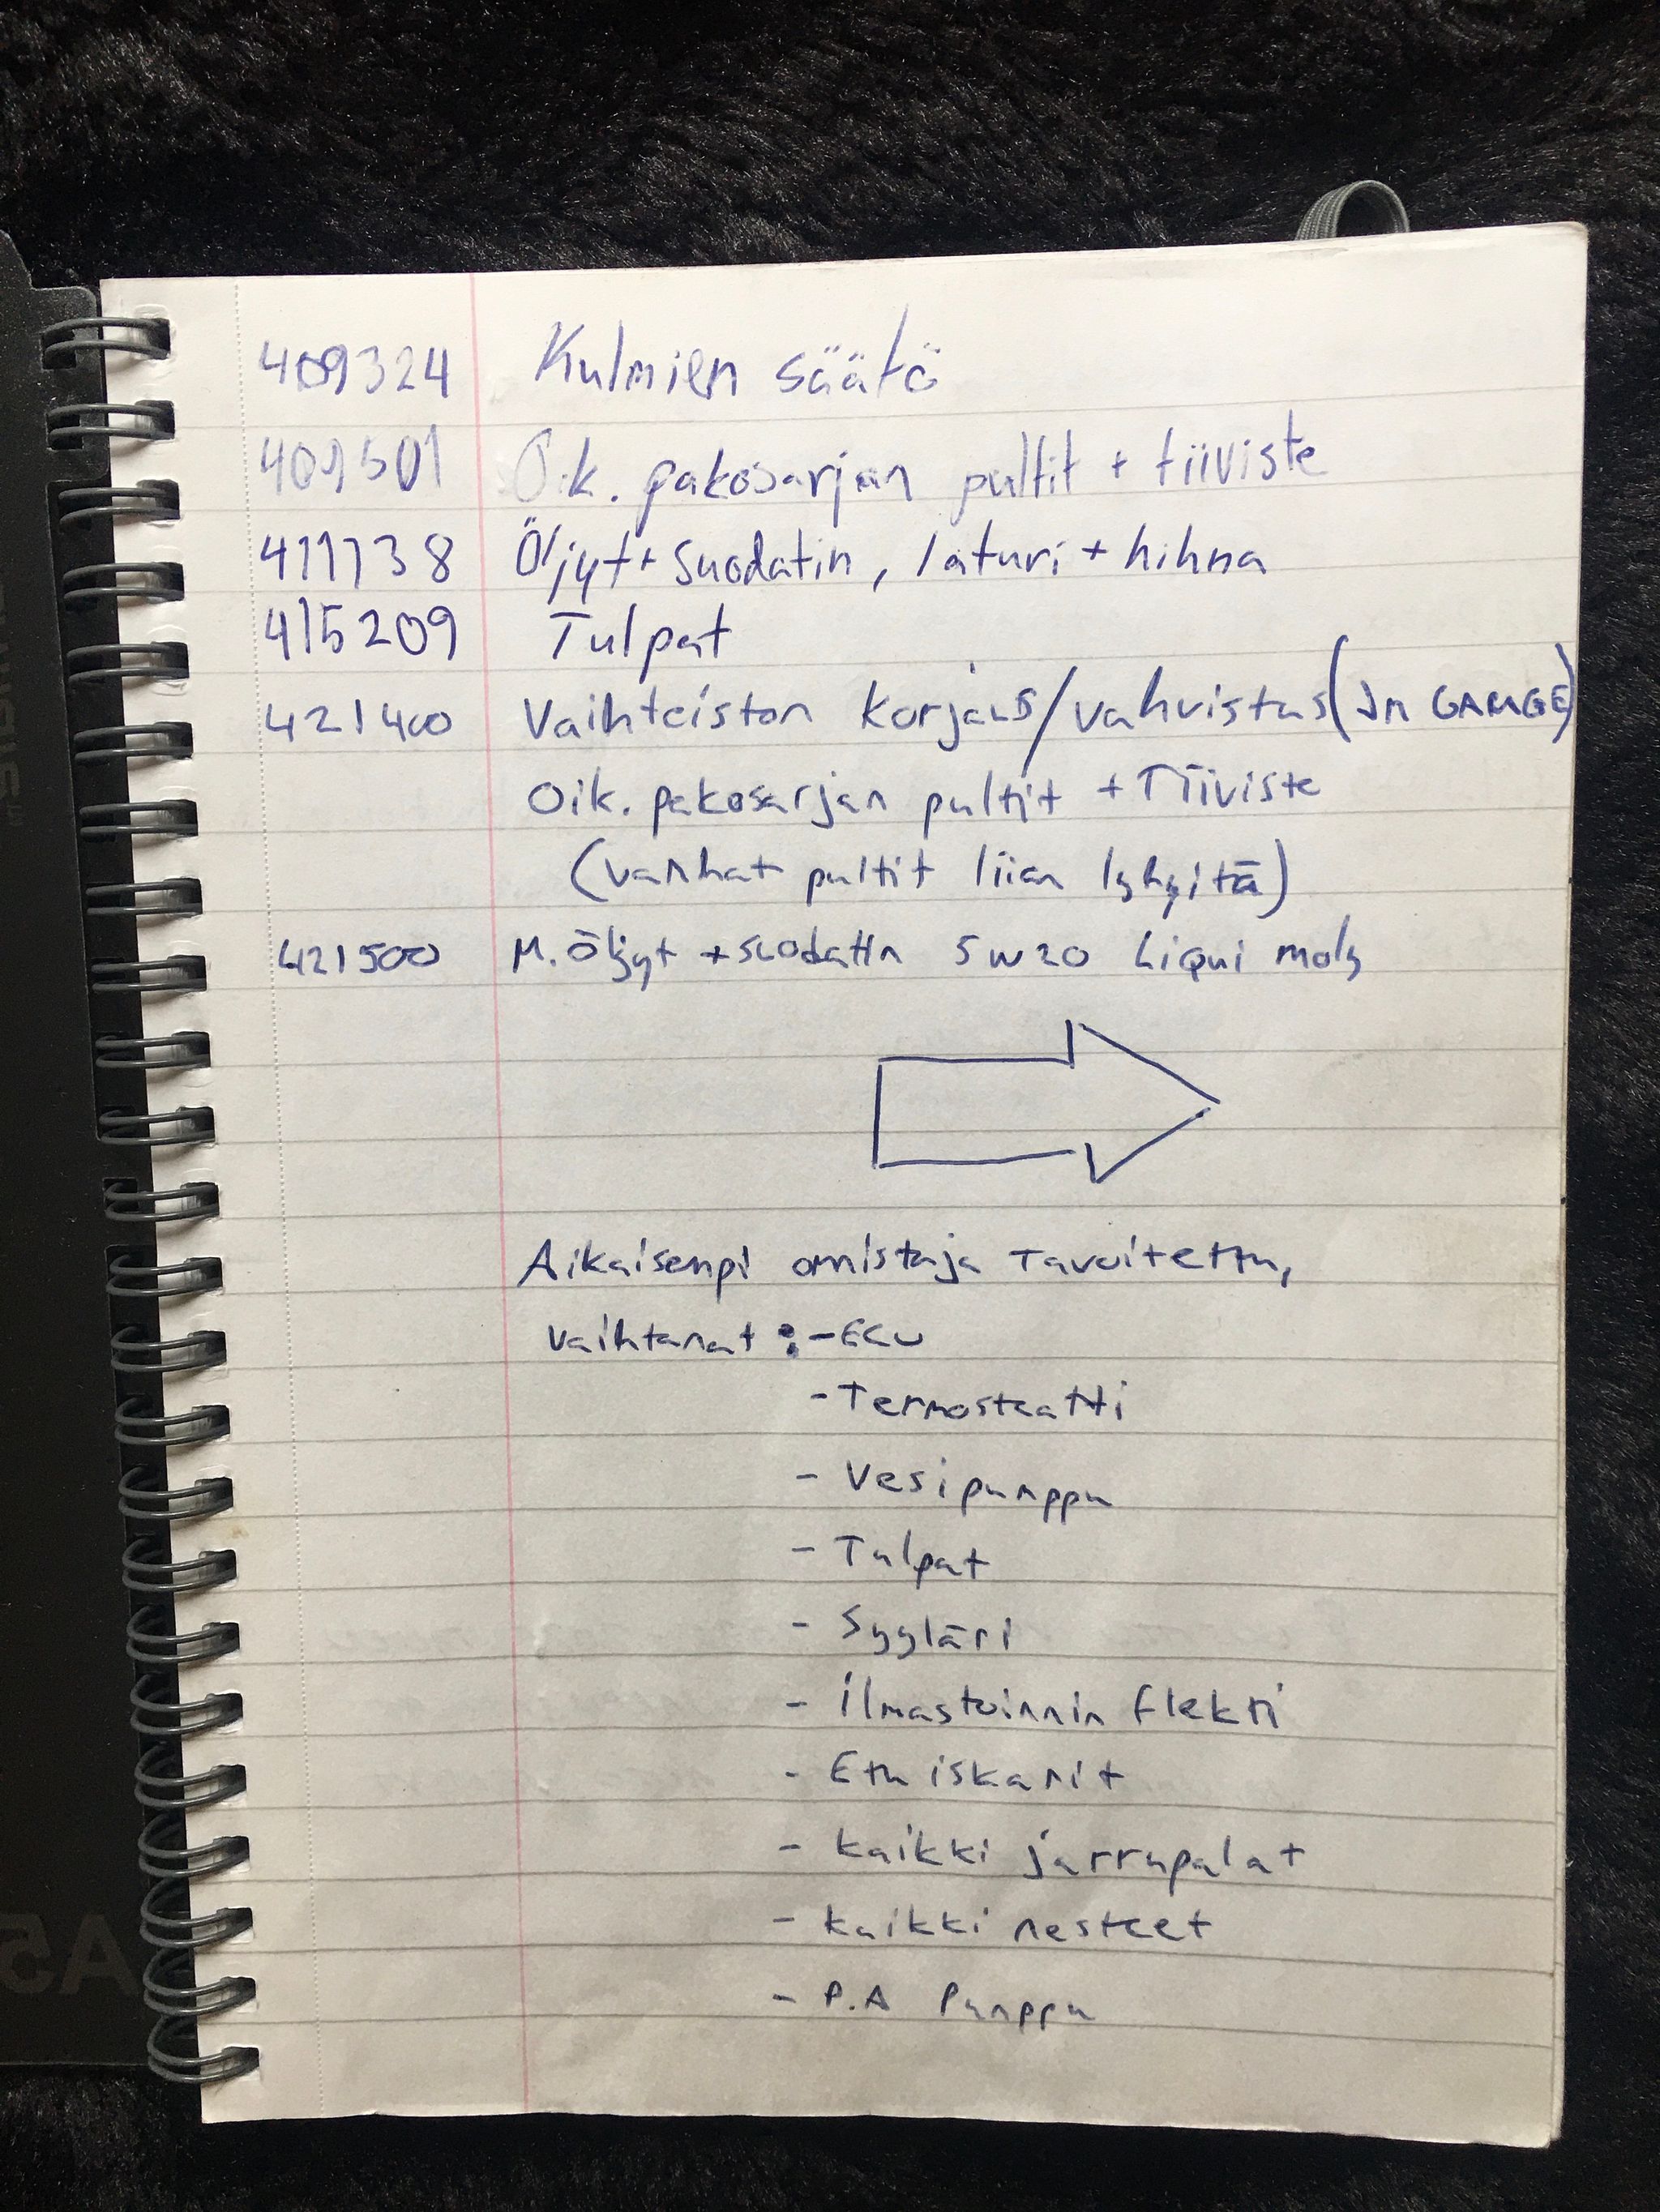 409324 Kulmien säätö
409501 Oik. pakosarjan pultit + tiiviste
411738 Öljyt + suodatin, laturi + hihna
415209 Tulpat
421400 Vaihteiston korjaus/vahvistus (JM GARAGE)
Oik. pakosarjan pultit + Tiiviste
(vanhat pultit liian lyhyitä)
421500 M. Öljyt + suodatin 5W20 Liqui moly
Aikaisempi omistaja Tavoitettu,
vaihtanat : - ECU
- Termostaatti
- Vesipumppu
- Tulpat
- Syyläri
- ilmastoinnin flekti
- Etu iskarit
- kaikki jarrupalat
- kaikki nesteet
- P.A Pumppu
A5